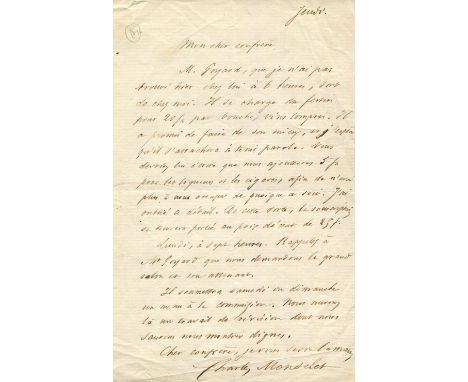 Jeudi.
Mon cher confrère
M. Goyard, que je n'ai pas
trouvé hier chez lui à 6 heures, sort
de chez moi. Il se charge du festin
pour 20 f. par bouche, vins compris. Il
a promis de faire de son mieux, et j'espère
qu'il s'attachera à tenir parole. Vous
que nous ajouterions 5 f.
pour les liqueurs et les cigares, afin de n'avoir
plus à nous occuper de quoique ce soit. J'ai
oublié ce détail. De cette sorte, la souscription
se trouvera portée au prix de 25 f.
Lundi, à sept heures. Rappelez à
Mr Goyard que nous demandons le grand
salon et son attenant.
Il soumettra samedi ou dimanche
un menu à la commission. Nous aurons
là un travail de révision dont nous
saurons nous montrer dignes.
Cher confrère, je vous serre la main
Charles Monselet